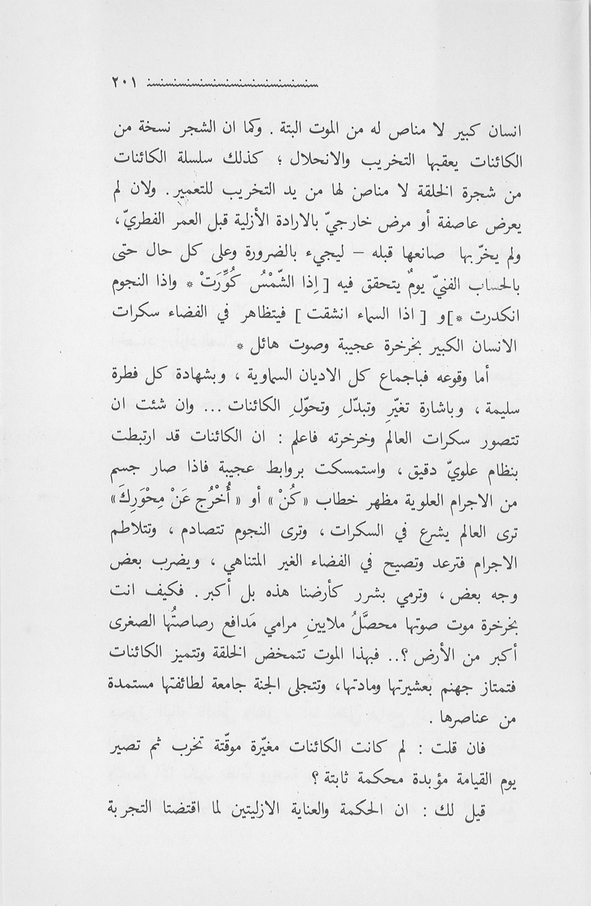 ٢٠١
انسان كبير لا مناص له من الموت البتة . وكما ان الشجر نسخة من
الكائنات يعقبها التخريب والانحلال ؛ كذلك سلسلة الكائنات
من شجرة الخلقة لا مناصن لها من يد التخريب للتعمير. ولان لم
يعرض عاصفة أو مرض خارجيّ بالارادة الأزلية قبل العمر الفطريّ،
ولم يخرّبها صانعها قبله – ليجيء بالضرورة وعلى كل حال حتى
بالحساب الفنيّ يومٌ يتحقق فيه [ إِذا الشّمْسُ كُوِّرَتْ * واذا النجوم
انكدرت *]و [ اذا السماء انشقت ] فيتظاهر في الفضاء سكرات
الانسان الكبير بخرخرة عجيبة وصوت هائل *
أما وقوعه فباجماع كل الاديان السماوية ، وبشهادة كل فطرة
سليمة ، وباشارة تغيّرِ وتبدّلِ وتحوّلِ الكائنات ... وان شئت ان
تتصور سكرات العالم وخرخرته فاعلم : ان الكائنات قد ارتبطت
بنظام علويّ دقيق، واستمسكت بروابط عجيبة فاذا صار جسم
من الاجرام العلوية مظهر خطاب « كُنْ » أو « أُخْرُج عَنْ مِحْوَرِكَ»
ترى العالم يشرع في السكرات ، وترى النجوم تتصادم ، وتتلاطم
الاجرام فترعد وتصيح في الفضاء الغير المتناهي ، ويضرب بعض
وجه بعض ، وترمي بشرر كأرضنا هذه بل أكبر. فكيف انت
بخرخرة موت صوتها محصَّلُ ملايين مرامي مَدافع رصاصتُها الصغرى
أكبر من الأرض ؟.. فبهذا الموت تتمخض الخلقة وتتميز الكائنات
فتمتاز جهنم بعشيرتها ومادتها، وتتجلى الجنة جامعة لطائفتها مستمدة
من عناصرها .
فان قلت : لم كانت الكائنات مغيّرة موقّتة تخرب ثم تصير
يوم القيامة مؤبدة محكمة ثابتة ؟
قيل لك : ان الحكمة والعناية الازليتين لما اقتضتا التجربة